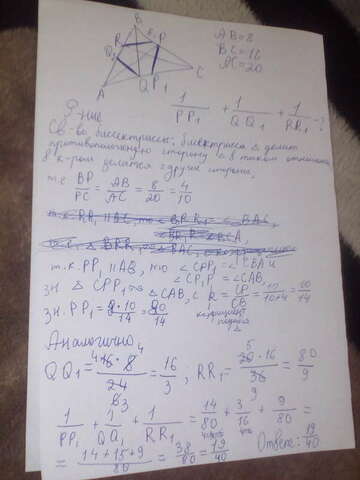 B
R P
Q
A Q₁ P₁ C
AB = 8
BC = 16
AC = 20
1/PP₁ + 1/QQ₁ + 1/RR₁ - ?
Р-ние
Св-во биссектрисы: биссектриса Δ делит
противоположную сторону в таком отношении,
в к-ром делятся другие стороны,
т.е
BP/PC = AB/AC = 8/20 = 4/10
т.к. PP₁ || AB, то ∠CPP₁ = ∠CBA и
зн Δ CPP₁ ~ Δ CAB, с k = CP/CB = 10/10+4 = 10/14
зн. PP₁ = 8·10/14 = 80/14
коэффициент подобия Δ
Аналогично
QQ₁ = 16·8/24 = 16/3 ; RR₁ = 20·16/36 = 80/9
1/PP₁ + 1/QQ₁ + 1/RR₁ = 14/80 + 3/16 + 9/80 =
= 14+15+9/80 = 38/80 = 19/40
Ответ: 19/40